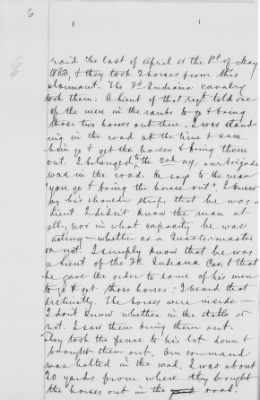 6
raid the last of April or the 1st of May
1863, & they took 2 horses from this
claimant. The 3d Indiana cavalry
took them. A Lieut of that regt told one
of the men in the ranks to go & bring
those two horses out there. I was stand-
ing in the road at the time & saw
him go & get the horses & bring them
out. I belonged to the 2nd NY. our brigade
was in the road. He says to the man
"you go & bring the horses out". I knew
by his shoulder strap, that he was a
Lieut I didn't know the man at
all, nor in what capacity he was
acting - whether as a Quartermaster
or not. I simply know that he was
a Lieut of the 3d Indiana Cav. & that
he gave the order to some of his men
to go & get those horses. I heard that
distinctly. The horses were inside -
I don't know whether in the stable or
not. I saw them bring them out.
They took the fence to his lot down &
brought them out. Our command
was halted in the road, I was about
20 yards from where they brought
the horses out in the road.